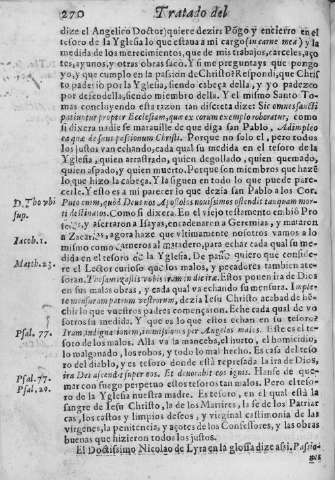 270 Tratado del
dize el Angelico Doctor) quiere dezir: Pōgo y encierro en el
tesoro de la Yglesia lo que estaua a mi cargo (in carne mea) y la
medida de los merecimientos, que de mis trabajos, carceles, aço
tes, ayunos, y otras obras saco. Y si me preguntays que pongo
yo, y que cumplo en la passiōn de Christo? Respondi, que Chris
to padecio por la Yglesia, siendo cabeça della, y yo padezco
por ella, siendo miembro della. Y el mismo Santo Tomas
concluyendo esta razon tan discreta dize: Sic omnes sancti
patiuntur propter Ecclesiam, quæ ex eorum exemplo roboratur, como
si dixera nadie se marauille de que diga san Pablo, Adimpleo
ea quæ desunt passionum Christi. Porque no solo el, pero todos
los justos van echando, cada qual su medida en el tesoro de la
Yglesia, quien arrastrado, quien degollado, quien quemado,
quien aspado, y quien muerto. Porque son miembros que hazē
lo que hizo la cabeça, y la siguen en todo lo que puede pare
cerle. Y esto es a mi parecer lo que dezia san Pablo a los Cor.
D. Tho vbi sup.
Puto enim, quòd Deus nos Apostolos nouissimos ostendit tanquam mor
ti destinatos. Como si dixera. En el viejo testamento embiò Pro
fetas, y aserraron a Isayas, encadenaron a Geremias, y mataron
a Zacarias, agora haze lo mismo vltimamente nosotros vamos a lo
Iacob. 1.
mismo como carneros al matadero, para echar cada qual su me
dida en el tesoro de la Yglesia. De passo quiero que conside
Matth. 23.
re el Lector curioso que los malos, y pecadores tambien ate
soran. Thesaurizastis vobis iram in die iræ. Estos ponen ira de Dios
en sus malas obras, y cada qual va echando su mensura. Imple
te mensuram patrum vestrorum, dezia Iesu Christo acabad de hē
chir lo que vuestros padres començaron. Eche cada qual de vo
sotros su medida. Y que es lo que estos echan en su tesoro?
Psal. 77.
Iram indignationem, immissiones per Angelos malos. Este es el te
soro de los malos. Alla va la manceba, el hurto, el homicidio,
lo malganado, los robos, y todo lo mal hecho. Es casa del teso
ro del diablo, y es tesoro donde està represada la ira de Dios,
Psal. 77.
ira Dei ascendit super eos. Et deuorabit eos ignis. Hanse de que
Psal. 20.
mar con fuego perpetuo estos tesoros tan malos. Pero el teso-
ro de la Yglesia nuestra madre. Es tesoro, en el qual està la
sangre de Iesu Christo, la de los Martires, la fe de los Patriar
cas, los castos y limpios deseos, y virginal castimonia de las
virgenes, la penitencia, y açotes de los Confessores, y las obras
buenas que hizieron todos los justos.
El Doctissimo Nicolao de Lyra en la glossa dize assi. Passio-
nes